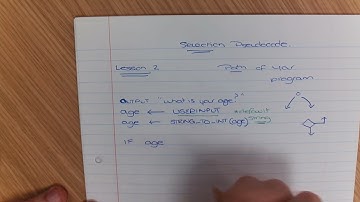 Selection Pseudocode.
Lesson 2
Path of your
program
OUTPUT "what is your age?"
age ← USERINPUT
age ← STRING-TO-INT(age) string
IF age